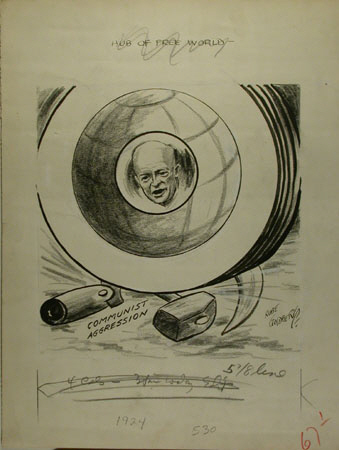 HUB OF FREE WORLD
COMMUNIST
AGGRESSION
RUBE
GOLDBERG
5 3/8 line
1924
530
67